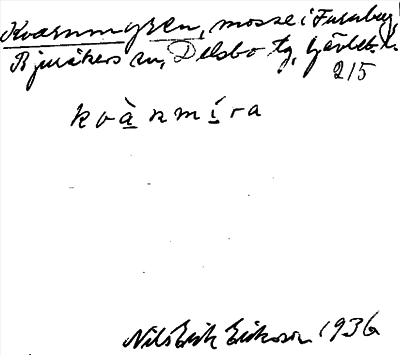 Kvarnmyren, mosse i Furuberg,
Bjuråkers sn, Delsbo tg, Gävleb. l.
215
kvànmíra
Nils Erik Eriksson 1936